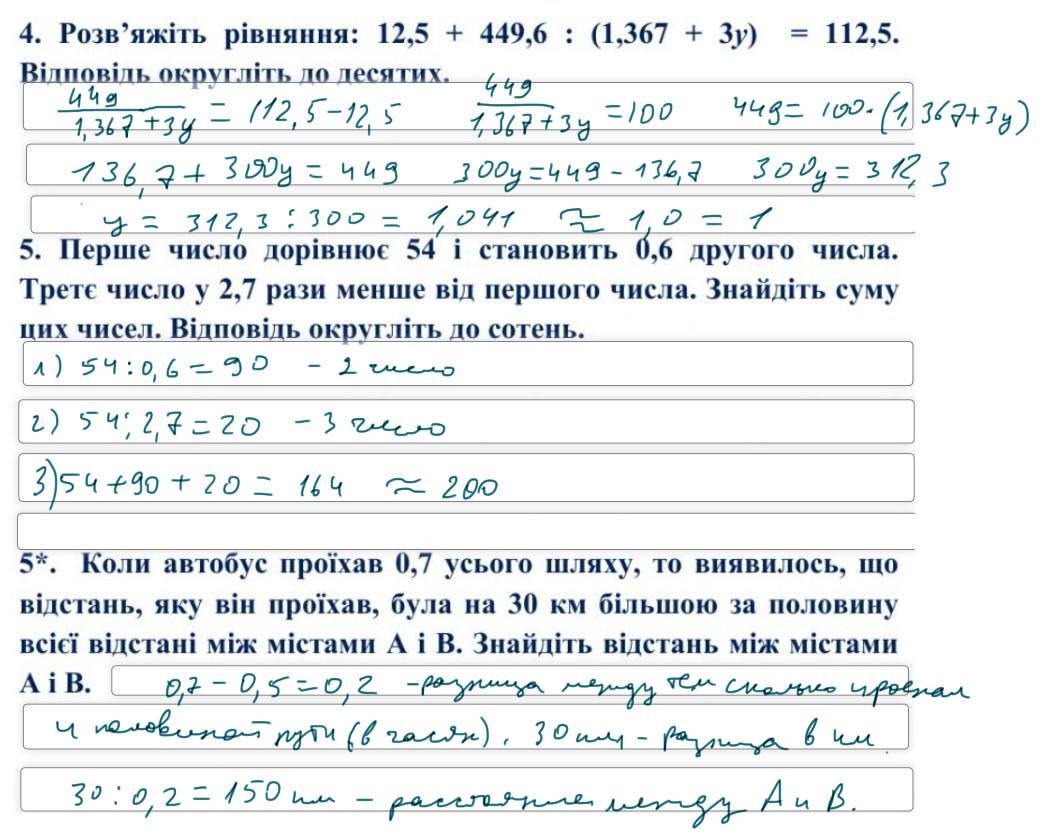 4. Розв’яжіть рівняння: 12,5 + 449,6 : (1,367 + 3y) = 112,5.
Відповідь округліть до десятих.
449/(1,367+3y) = 112,5-12,5 449/(1,367+3y) =100 449= 100·(1,367+3y)
136,7+ 300y = 449 300y=449-136,7 300y = 312,3
y = 312,3:300 = 1,041 ≈ 1,0 = 1
5. Перше число дорівнює 54 і становить 0,6 другого числа.
Третє число у 2,7 рази менше від першого числа. Знайдіть суму
цих чисел. Відповідь округліть до сотень.
1) 54:0,6=90 - 2 число
2) 54:2,7=20 - 3 число
3)54+90+20= 164 ≈ 200
5*. Коли автобус проїхав 0,7 усього шляху, то виявилось, що
відстань, яку він проїхав, була на 30 км більшою за половину
всієї відстані між містами А і В. Знайдіть відстань між містами
А і В. 0,7-0,5=0,2 -разница между тем сколько проехал
и половиной пути (в частях). 30 км - разница в км.
30:0,2=150 км - расстояние между А и В.